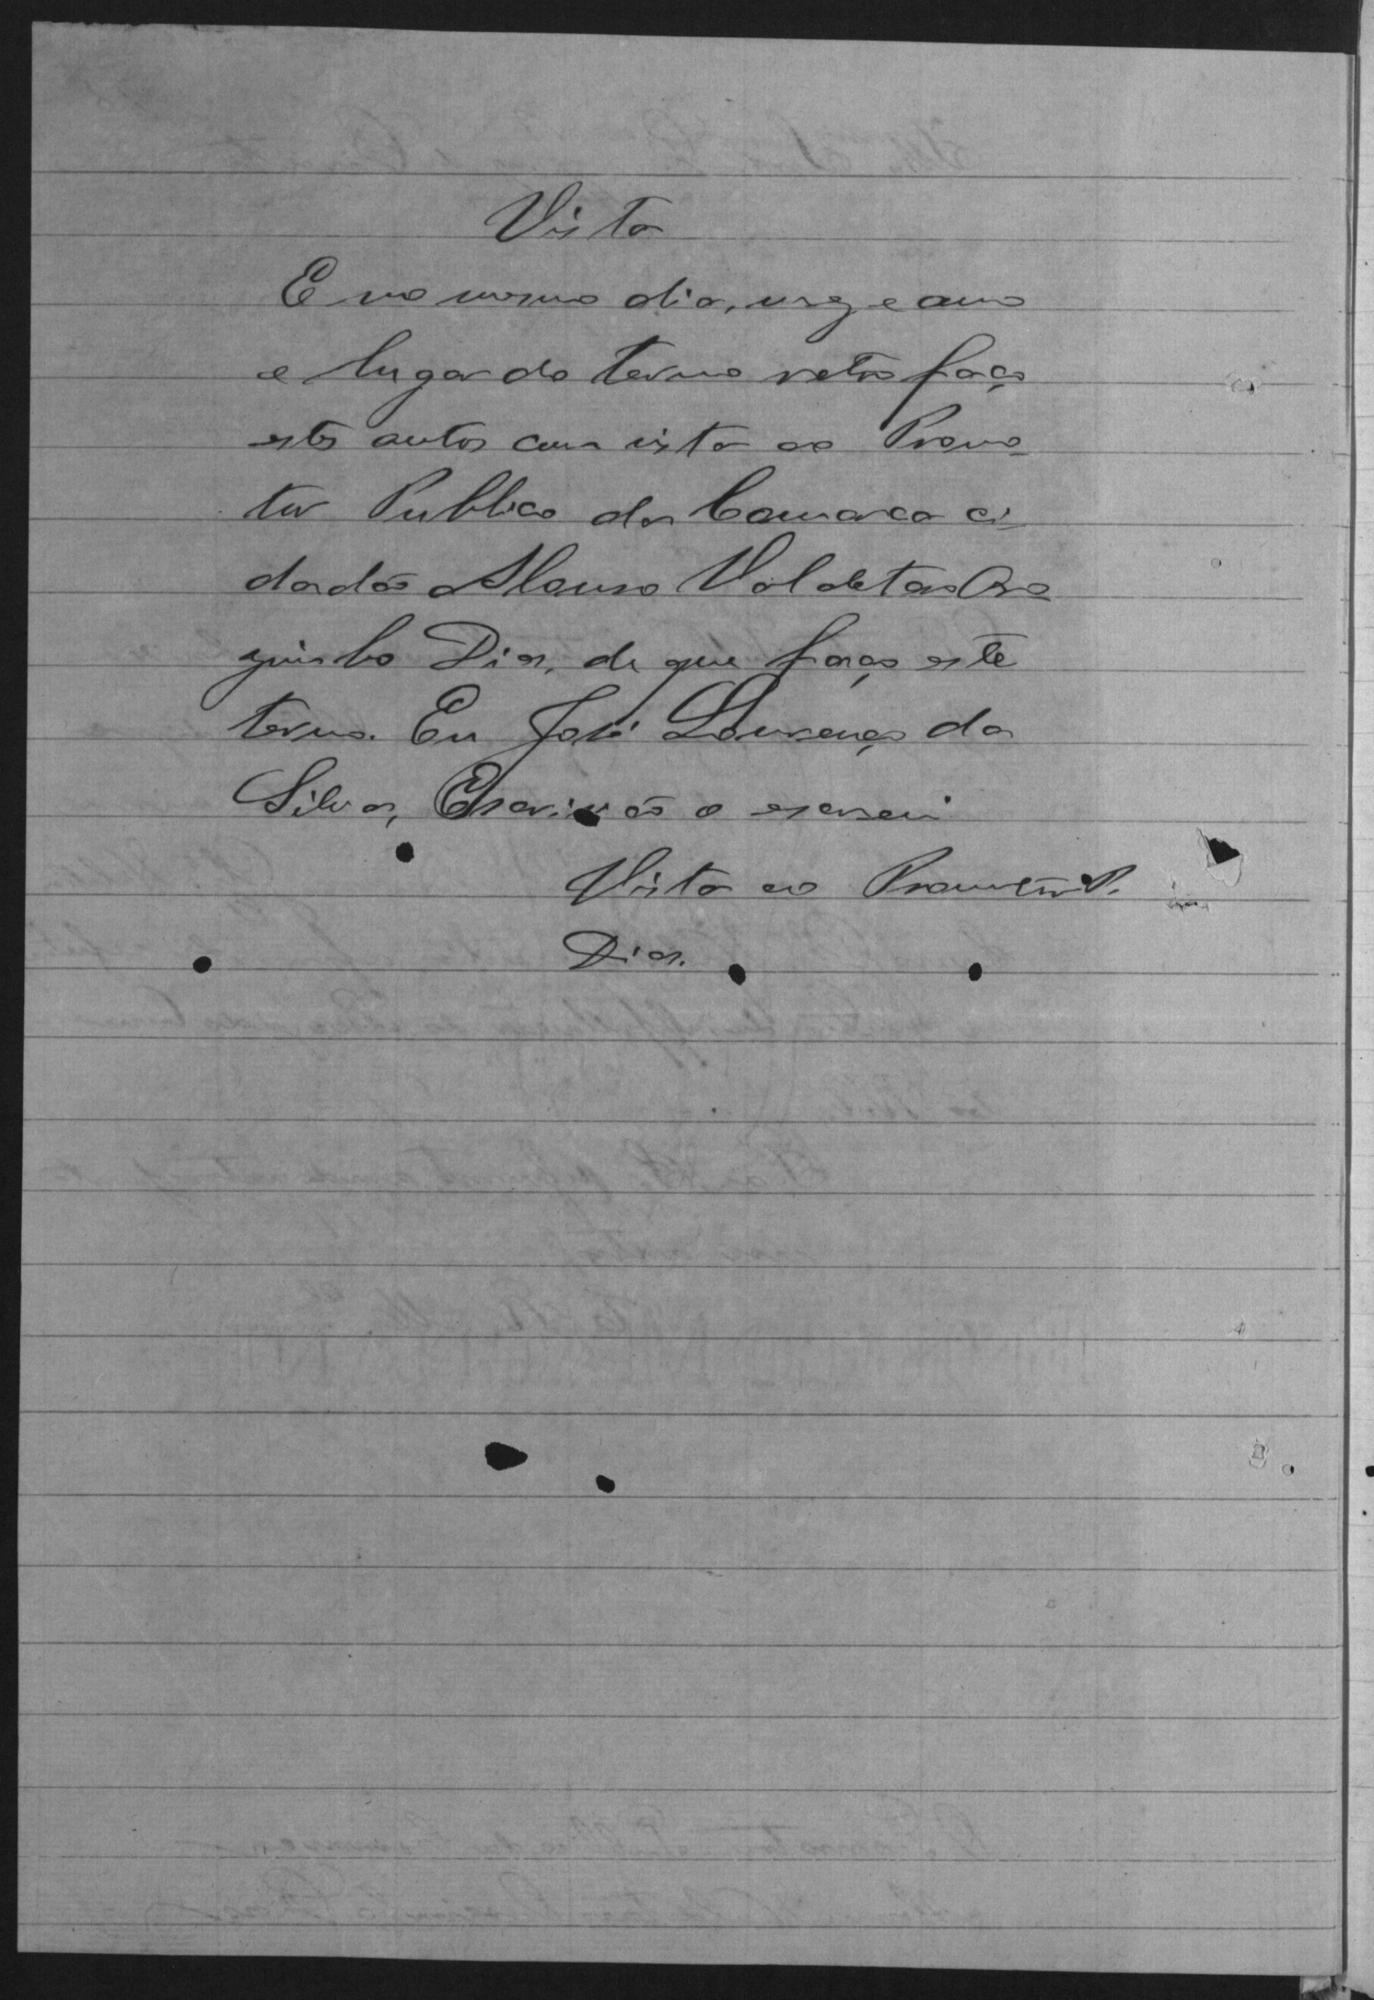 Vista
E no mesmo dia, mez e anno
e lugar do termo retro faço
estes autos com vista ao Promo-
tor Publico da Comarca ci-
dadão Alonso Valdetaro
guinho Dias, de que faço este
termo. Eu José Lourenço da
Silva, Escrivão o escrevi
Vista ao Promotor P.
Dias.